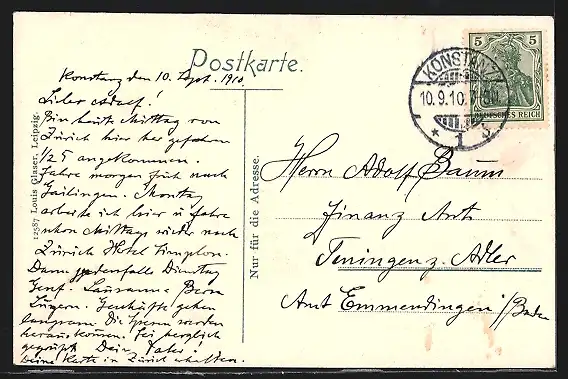 Postkarte.
Konstanz den 10. Sept. 1910.
Lieber Adolf!
Bin heute Mittag von
Zürich hier her gefahren
1/2 5 angekommen.
Fahre morgen früh nach
Gailingen. Montag
arbeite ich hier u fahre
schon Mittag wieder nach
Zürich Hotel Simplon.
Dann jedenfalls Dienstag
Genf. Lausanne Bern
Luzern. Geschäfte gehen
langsam. Die Spesen werden
herauskommen. Sei herzlich
gegrüßt Dein Vater
Deine Karte in Zürich erhalten.
12587 Louis Glaser, Leipzig.
Nur für die Adresse.
KONSTANZ
10.9.10.
* 1
5 5
DEUTSCHES REICH
Herrn Adolf Baum
Finanz Amt
Teningen z. Adler
Amt Emmendingen i/Baden